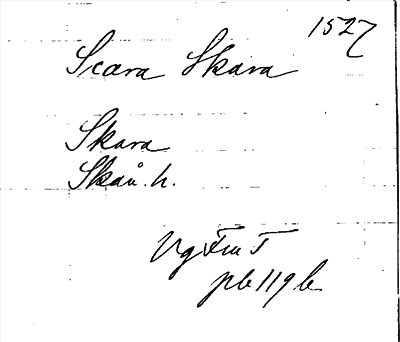 1527
Scara Skara
Skara
Skån. h.
Vg Fm T
pb 119 b